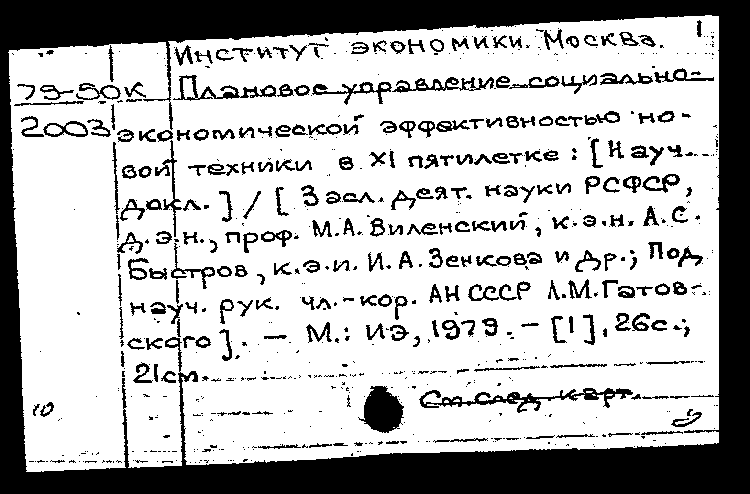 1
Институт экономики. Москва.
79-50К Плановое управление социально-
2003 экономической эффективностью но-
вой техники в XI пятилетке: [Науч.
докл.] / [Засл. деят. науки РСФСР,
д.э.н., проф. М.А. Виленский, к.э.н. А.С.
Быстров, к.э.н. И.А. Зенкова и др.; Под
науч. рук. чл.-кор. АН СССР Л.М. Гатов-
ского]. — М.: ИЭ, 1979. — [1], 26с.;
21см.
См. след. карт.
10